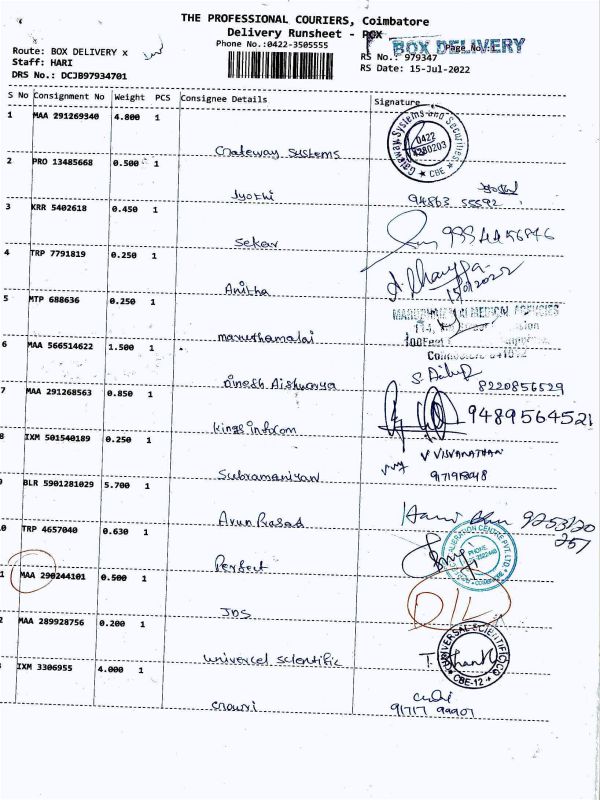 THE PROFESSIONAL COURIERS, Coimbatore
Delivery Runsheet - POX
BOX DELIVERY
Phone No.:0422-3505555
Page No.:1
Route: BOX DELIVERY x
RS No.: 979347
Staff: HARI
RS Date: 15-Jul-2022
DRS No.: DCJB97934701
S No Consignment No Weight PCS Consignee Details Signature
1 MAA 291269340 4.800 1
Gateway Systems and Securities
0422
4280203
CBE
Gateway Systems
2 PRO 13485668 0.500 1
Jyothi 94863 55592
3 KRR 5402618 0.450 1
Sekar
4 TRP 7791819 0.250 1
Anitha 15/07/2022
5 MTP 688636 0.250 1
MEDICAL AGENCIES
maruthamalai
6 MAA 566514622 1.500 1
Dinesh Aishwarya 8220856529
7 MAA 291268563 0.850 1
9489564521
Kings infocom
8 IXM 501540189 0.250 1
V VISVANATHAN
Subramaniyan
BLR 5901281029 5.700 1
Arun Prasad
0 TRP 4657040 0.630 1
CALIBRATION CENTRE PVT. LTD
PHONE
Perfect
1 MAA 290244101 0.500 1
JDS
2 MAA 289928756 0.200 1
UNIVERSAL SCIENTIFIC CO
CBE-12
Universel scientific
IXM 3306955 4.000 1
Gowri 91717 99907